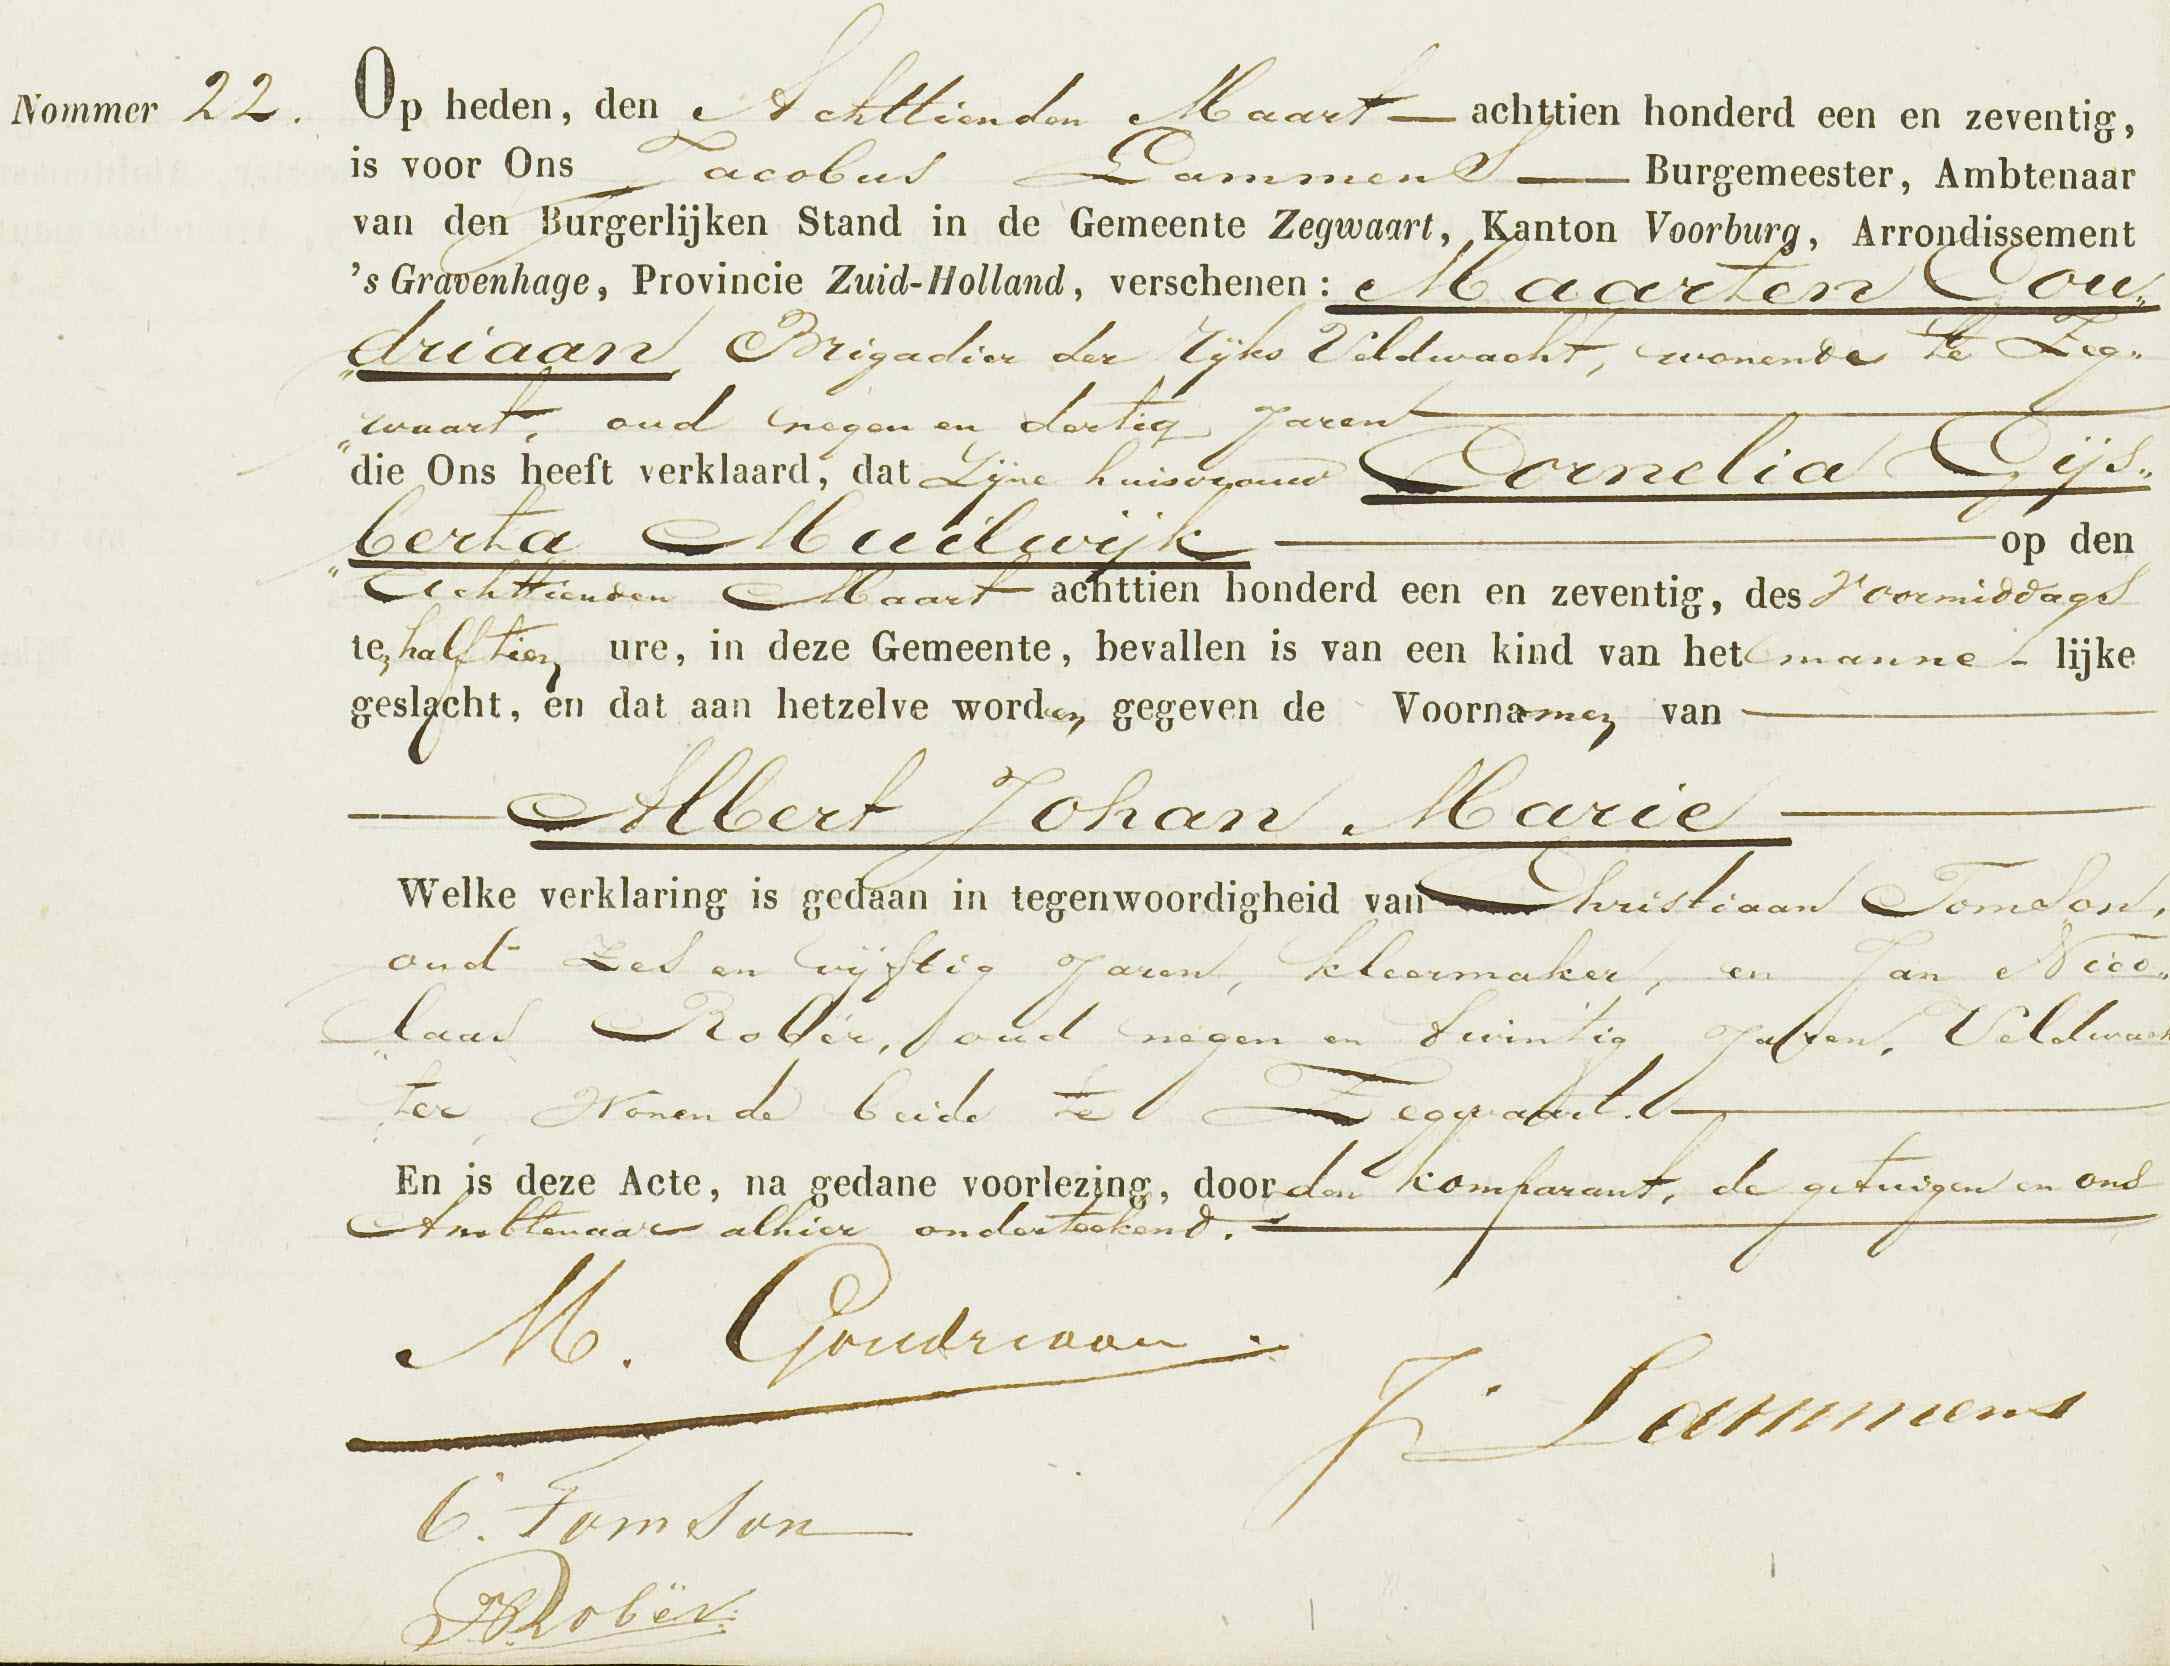 Nommer 22. Op heden, den Achttienden Maart — achttien honderd een en zeventig,
is voor Ons Jacobus Lammens — Burgemeester, Ambtenaar
van den Burgerlijken Stand in de Gemeente Zegwaart, Kanton Voorburg, Arrondissement
's Gravenhage, Provincie Zuid-Holland, verschenen: Maarten Gou„
„driaan, Brigadier der Rijks Veldwacht, wonende te Zeg„
„waart, oud negen en dertig Jaren —
die Ons heeft verklaard, dat Zijne huisvrouw Cornelia Gijs„
„berta Muilwijk — op den
Achttienden Maart achttien honderd een en zeventig, des Voormiddags
te half tien ure, in deze Gemeente, bevallen is van een kind van het manne - lijke
geslacht, en dat aan hetzelve worden gegeven de Voornamen van —
— Albert Johan Marie —
Welke verklaring is gedaan in tegenwoordigheid van Christiaan Tomson,
oud Zes en vijftig Jaren, kleermaker, en Jan Nico„
„laas Robër, oud negen en twintig Jaren, Veldwach
„ter, Wonende beide te Zegwaart. —
En is deze Acte, na gedane voorlezing, door den komparant, de getuigen en ons
Ambtenaar alhier onderteekend. —
M. Goudriaan.
J. Lammens
C. Tomson
JN Robër.